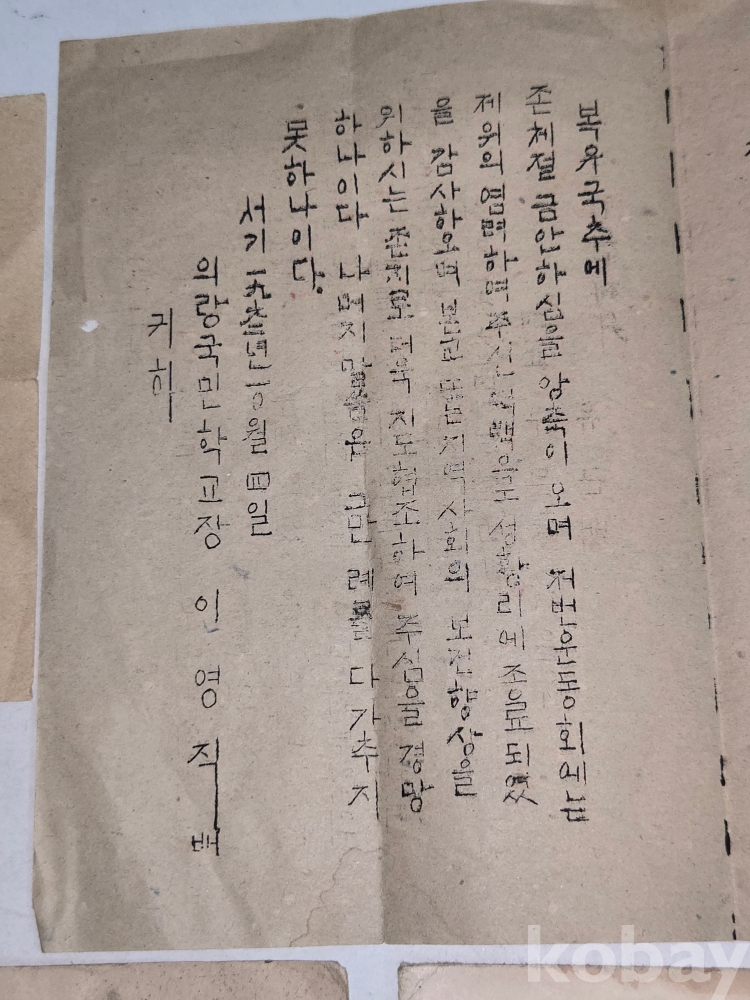 복유국추에
존체절 금안하심을 앙축이오며 저번운동회에는
제위의 염려하여주시는 덕택으로 성황리에 조료되였
을 감사하오며 본교 및 지역사회의 보건향상을
위하시는 존지로 더욱 지도협조하여 주심을 경망
하나이다 나머지말씀은 금만 례를 다가추지
못하나이다.
서기 一九 년 월 四일
의랑국민학교장 이영직
귀하
kobay